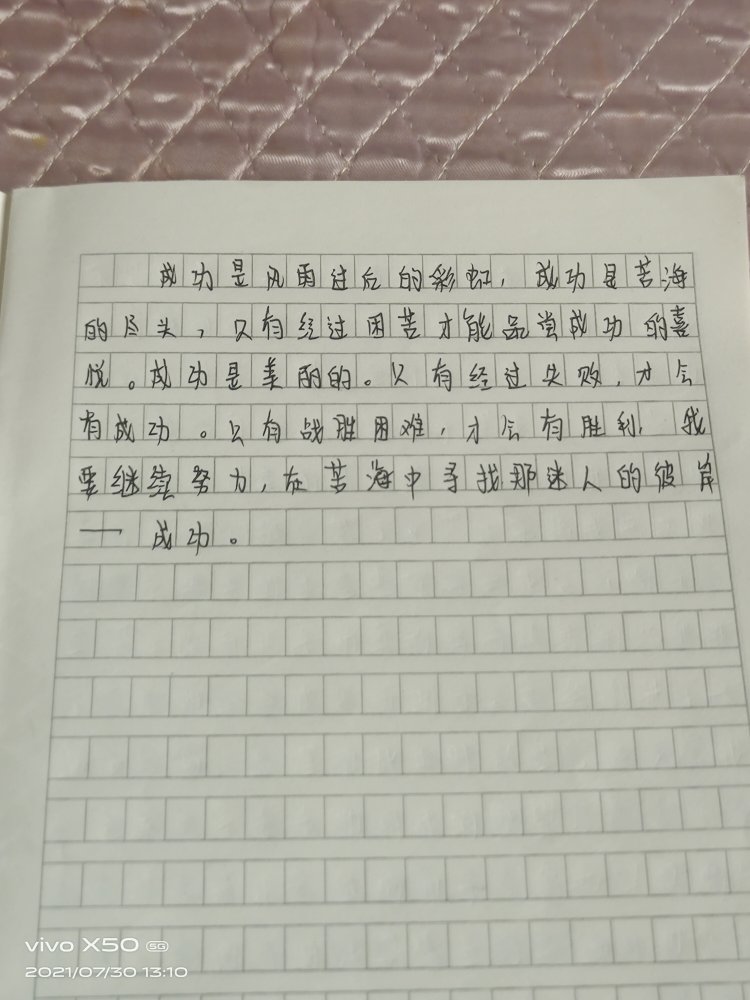 成功是风雨过后的彩虹，成功是苦海
的尽头，只有经过困苦才能品尝成功的喜
悦。成功是美丽的。只有经过失败，才会
有成功。只有战胜困难，才会有胜利，我
要继续努力，在苦海中寻找那迷人的彼岸
——成功。
vivo X50 5G
2021/07/30 13:10